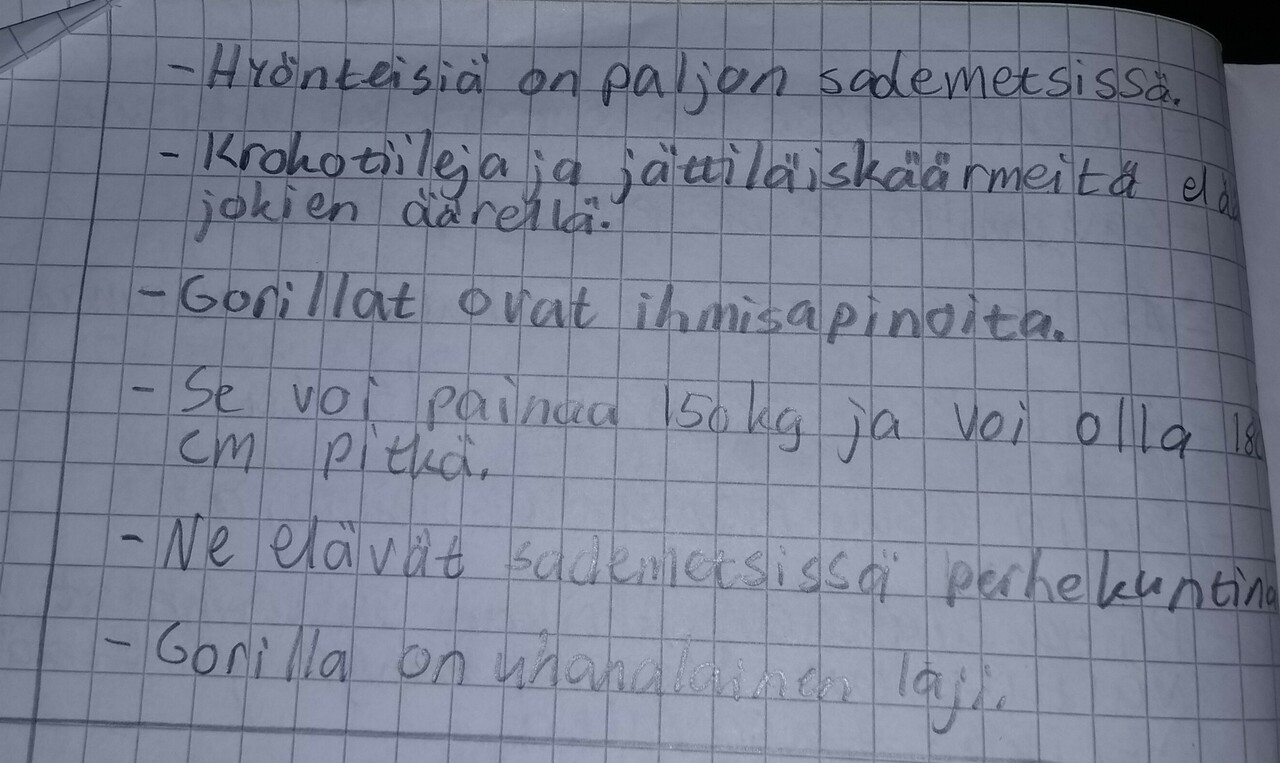 - Hyönteisiä on paljon sademetsissä.
- Krokotiileja ja jättiläiskäärmeitä elää
jokien äärellä.
- Gorillat ovat ihmisapinoita.
- Se voi painaa 150 kg ja voi olla 180
cm pitkä.
- Ne elävät sademetsissä perhekuntina
- Gorilla on uhanalainen laji.